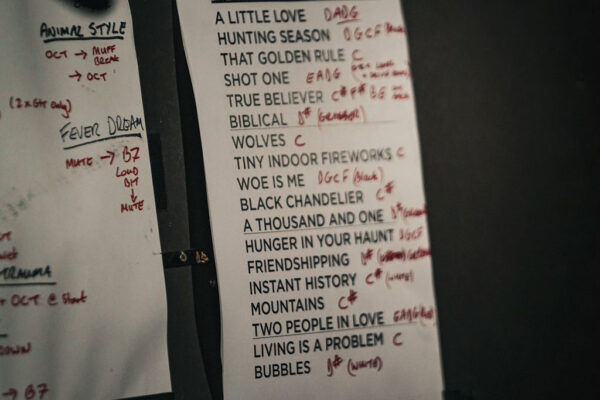 ANIMAL STYLE
OCT → MUFF
BREAK
→ OCT
(2x Gtr Only)
FEVER DREAM
MUTE → B7
LOUD
BIT
↓
MUTE
TRAUMA
OCT @ Start
DOWN
→ B7
A LITTLE LOVE DADG
HUNTING SEASON DGCF
THAT GOLDEN RULE C
SHOT ONE EADG
TRUE BELIEVER C# F# B E
BIBLICAL D#
WOLVES C
TINY INDOOR FIREWORKS C
WOE IS ME DGCF (Black)
BLACK CHANDELIER C#
A THOUSAND AND ONE D#
HUNGER IN YOUR HAUNT DGCF
FRIENDSHIPPING D#
INSTANT HISTORY C# (WHITE)
MOUNTAINS C#
TWO PEOPLE IN LOVE EADG
LIVING IS A PROBLEM C
BUBBLES D# (WHITE)